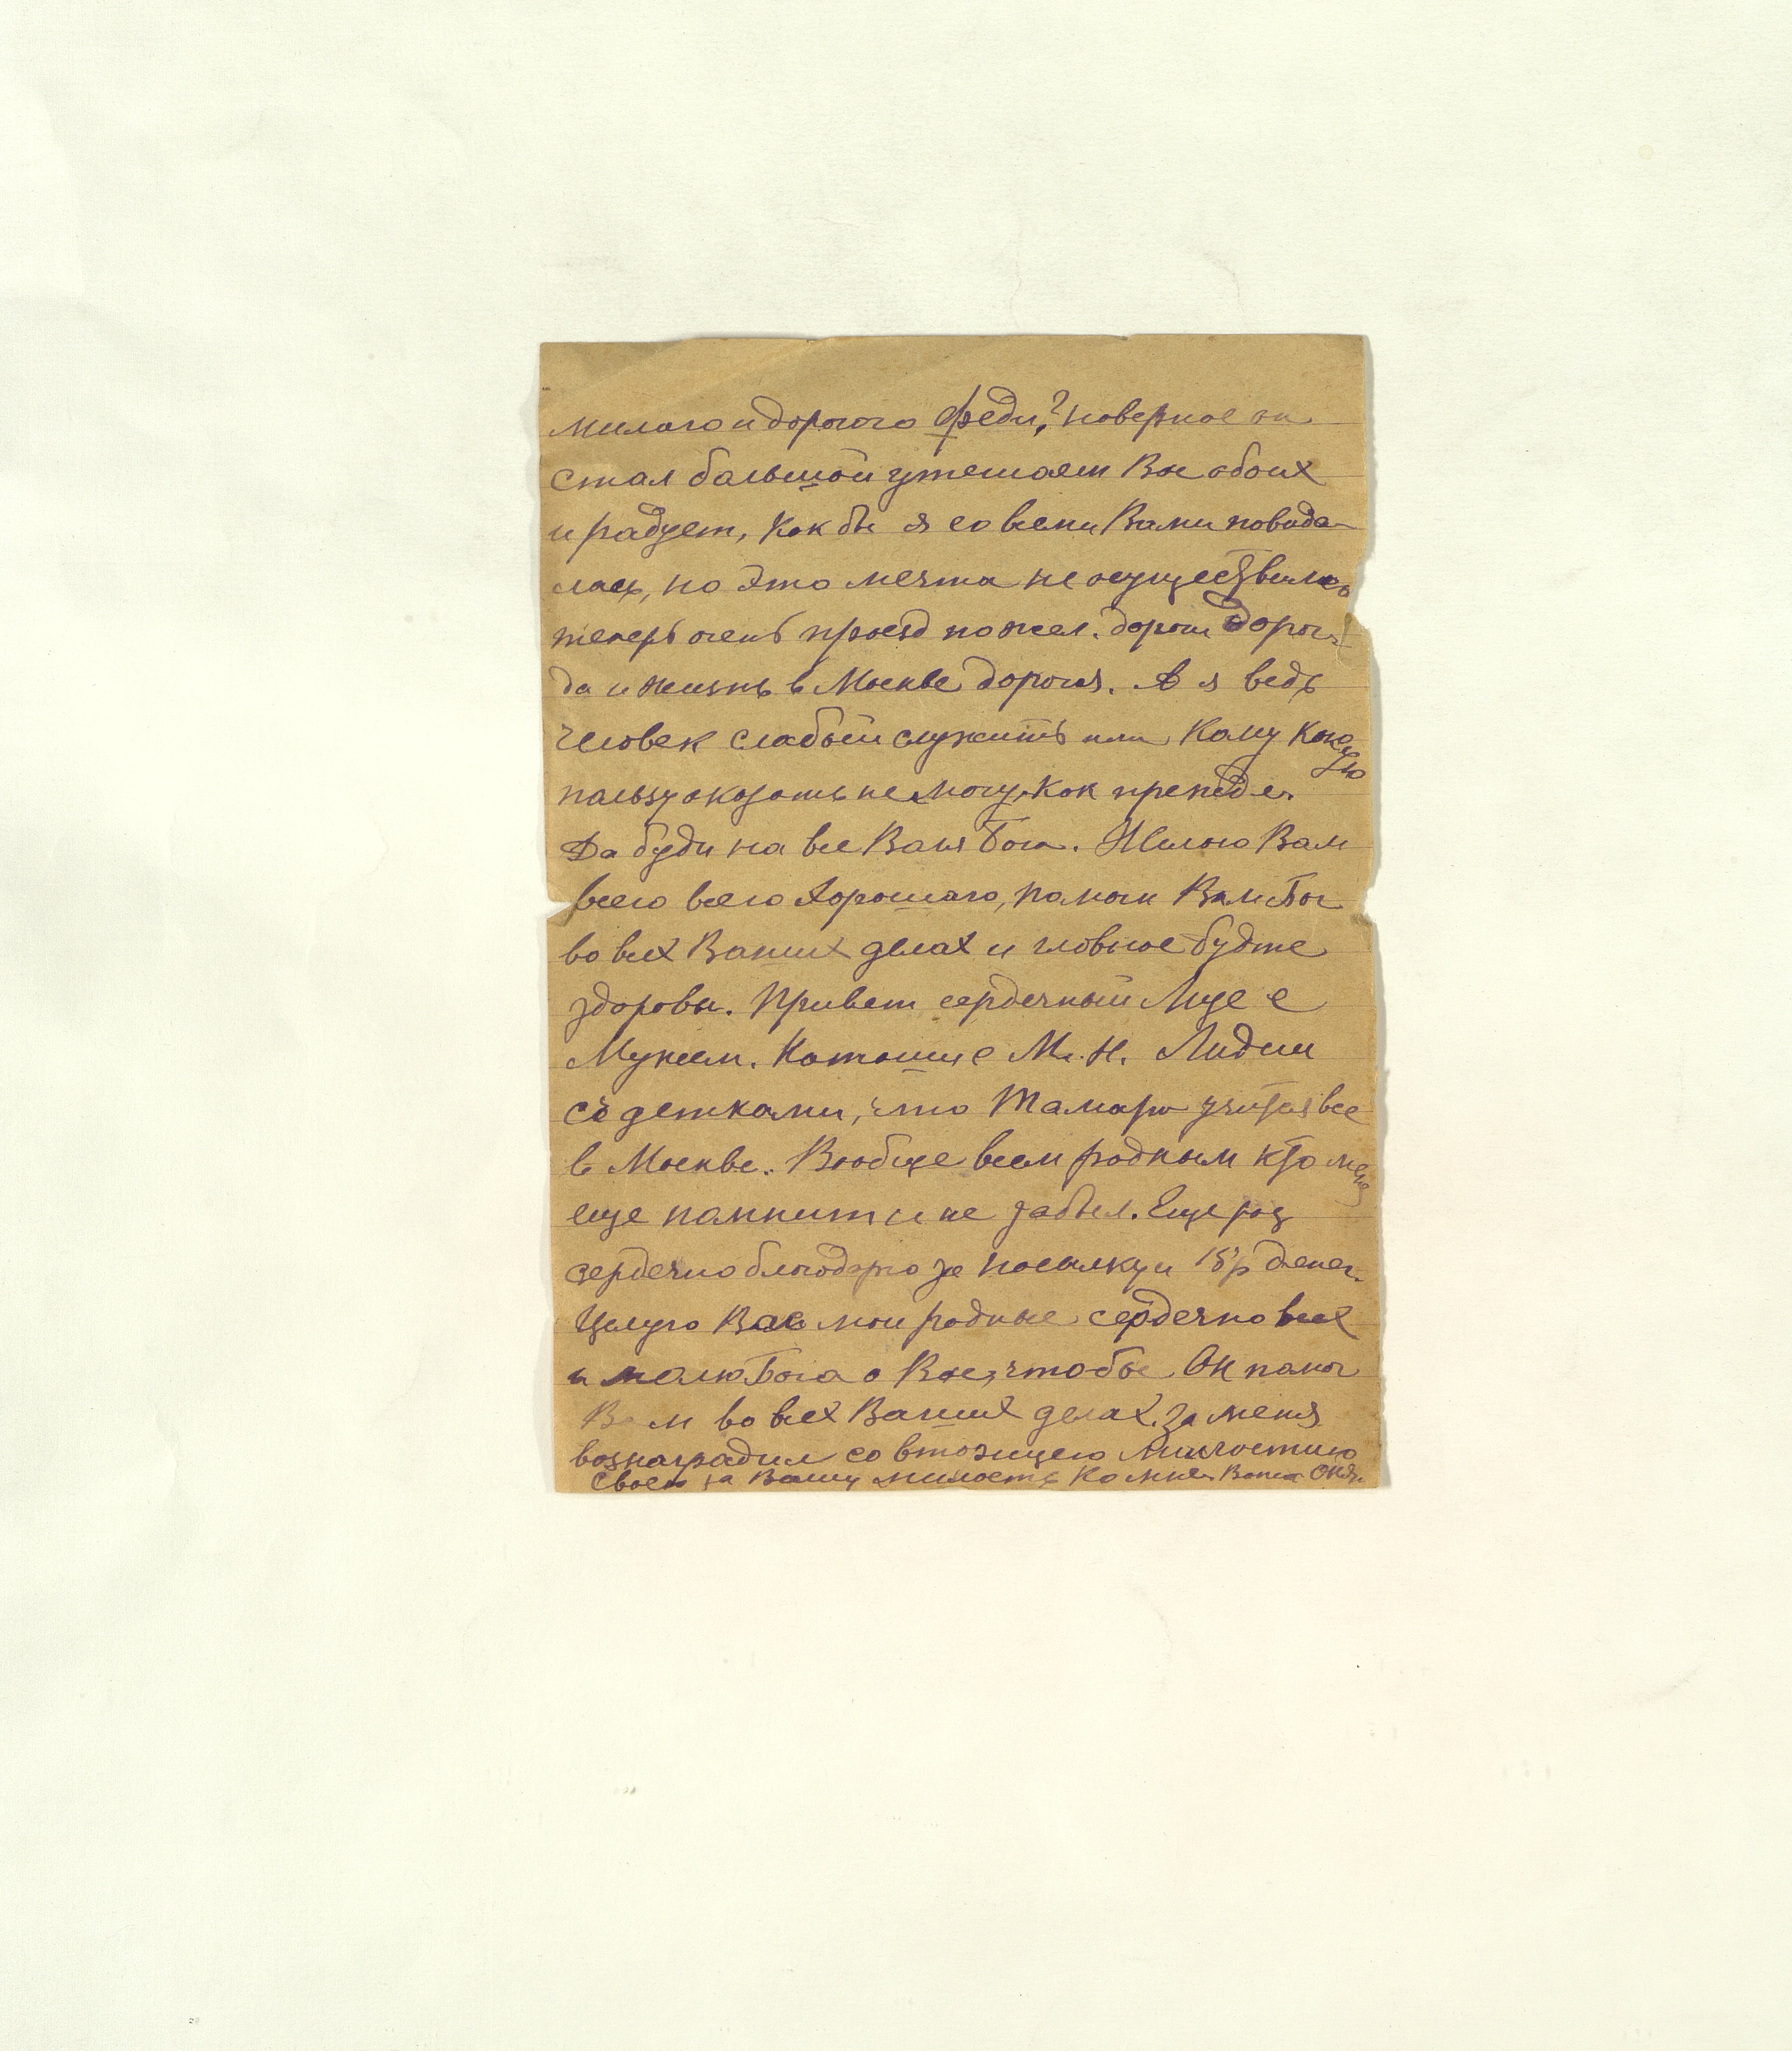 милаго и дорогого Федю? наверное он
стал большой утешает Вас обоих
и радует, Как бы я со всеми Вами повида-
лась, но это мечта не осуществима
теперь очень проезд по жел. дороги дорог
да и жизнь в Москве дорогая. А я ведь
человек слабый служить или Кому Какую
пользу оказать не могу, как прежде.
Да буди на все Воля Бога. Желаю Вам
всего всего Хорошаго, помоги Вам Бог
во всех Ваших делах и главное будте
здоровы. Привет сердечный Люсе с
Мужем. Катюше с М. Н. Лидии
с детками, что Тамара учится все
в Москве. Вообще всем родным кто меня
еще помнит и не забыл. Еще раз
сердечно благодарю за посылку и 15 р денег.
Целую Вас мои родные сердечно всех
и молю Бога о Вас, чтобы Он помог
Вам во всех Ваших делах. За меня
вознаградил со втолицею Милостию
Своею за Вашу милость Ко мне. Ваша